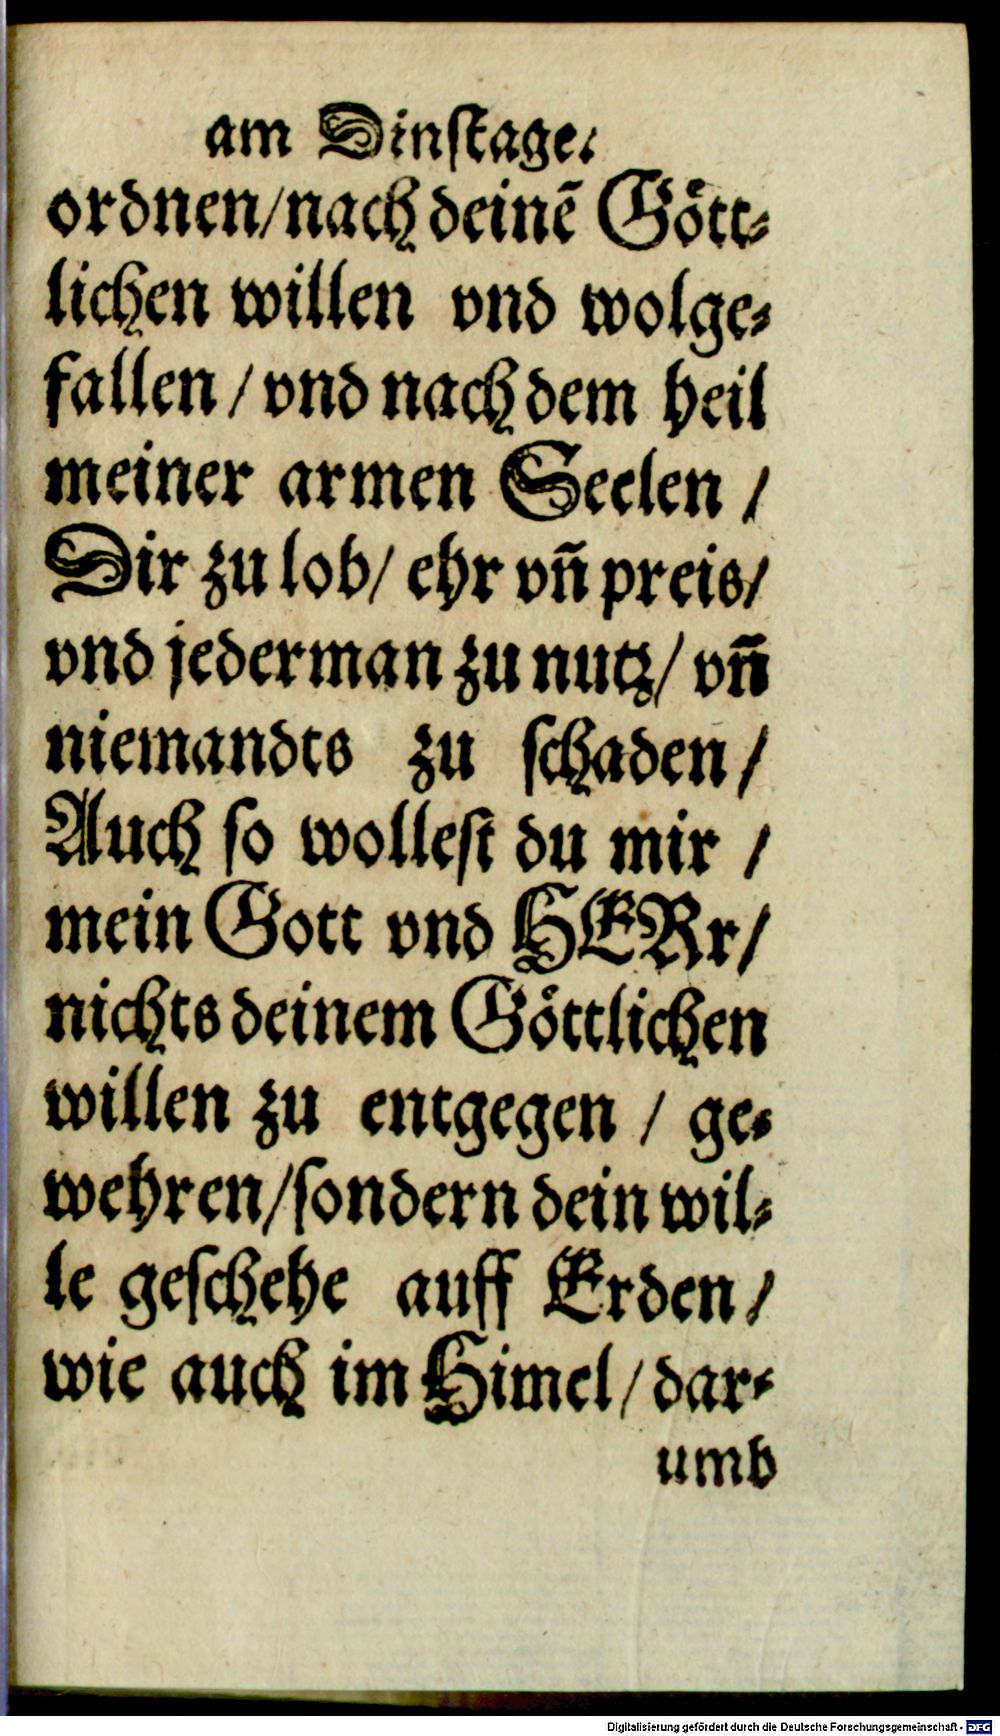 am Dinstage.
ordnen/nach deinẽ Gött-
lichen willen vnd wolge-
fallen / vnd nach dem heil
meiner armen Seelen /
Dir zu lob/ ehr vn̄ preis/
vnd jederman zu nutz/ vn̄
niemandts zu schaden /
Auch so wollest du mir /
mein Gott vnd HERr/
nichts deinem Göttlichen
willen zu entgegen / ge-
wehren/sondern dein wil-
le geschehe auff Erden /
wie auch im Himel / dar-
umb
Digitalisierung gefördert durch die Deutsche Forschungsgemeinschaft - DFG